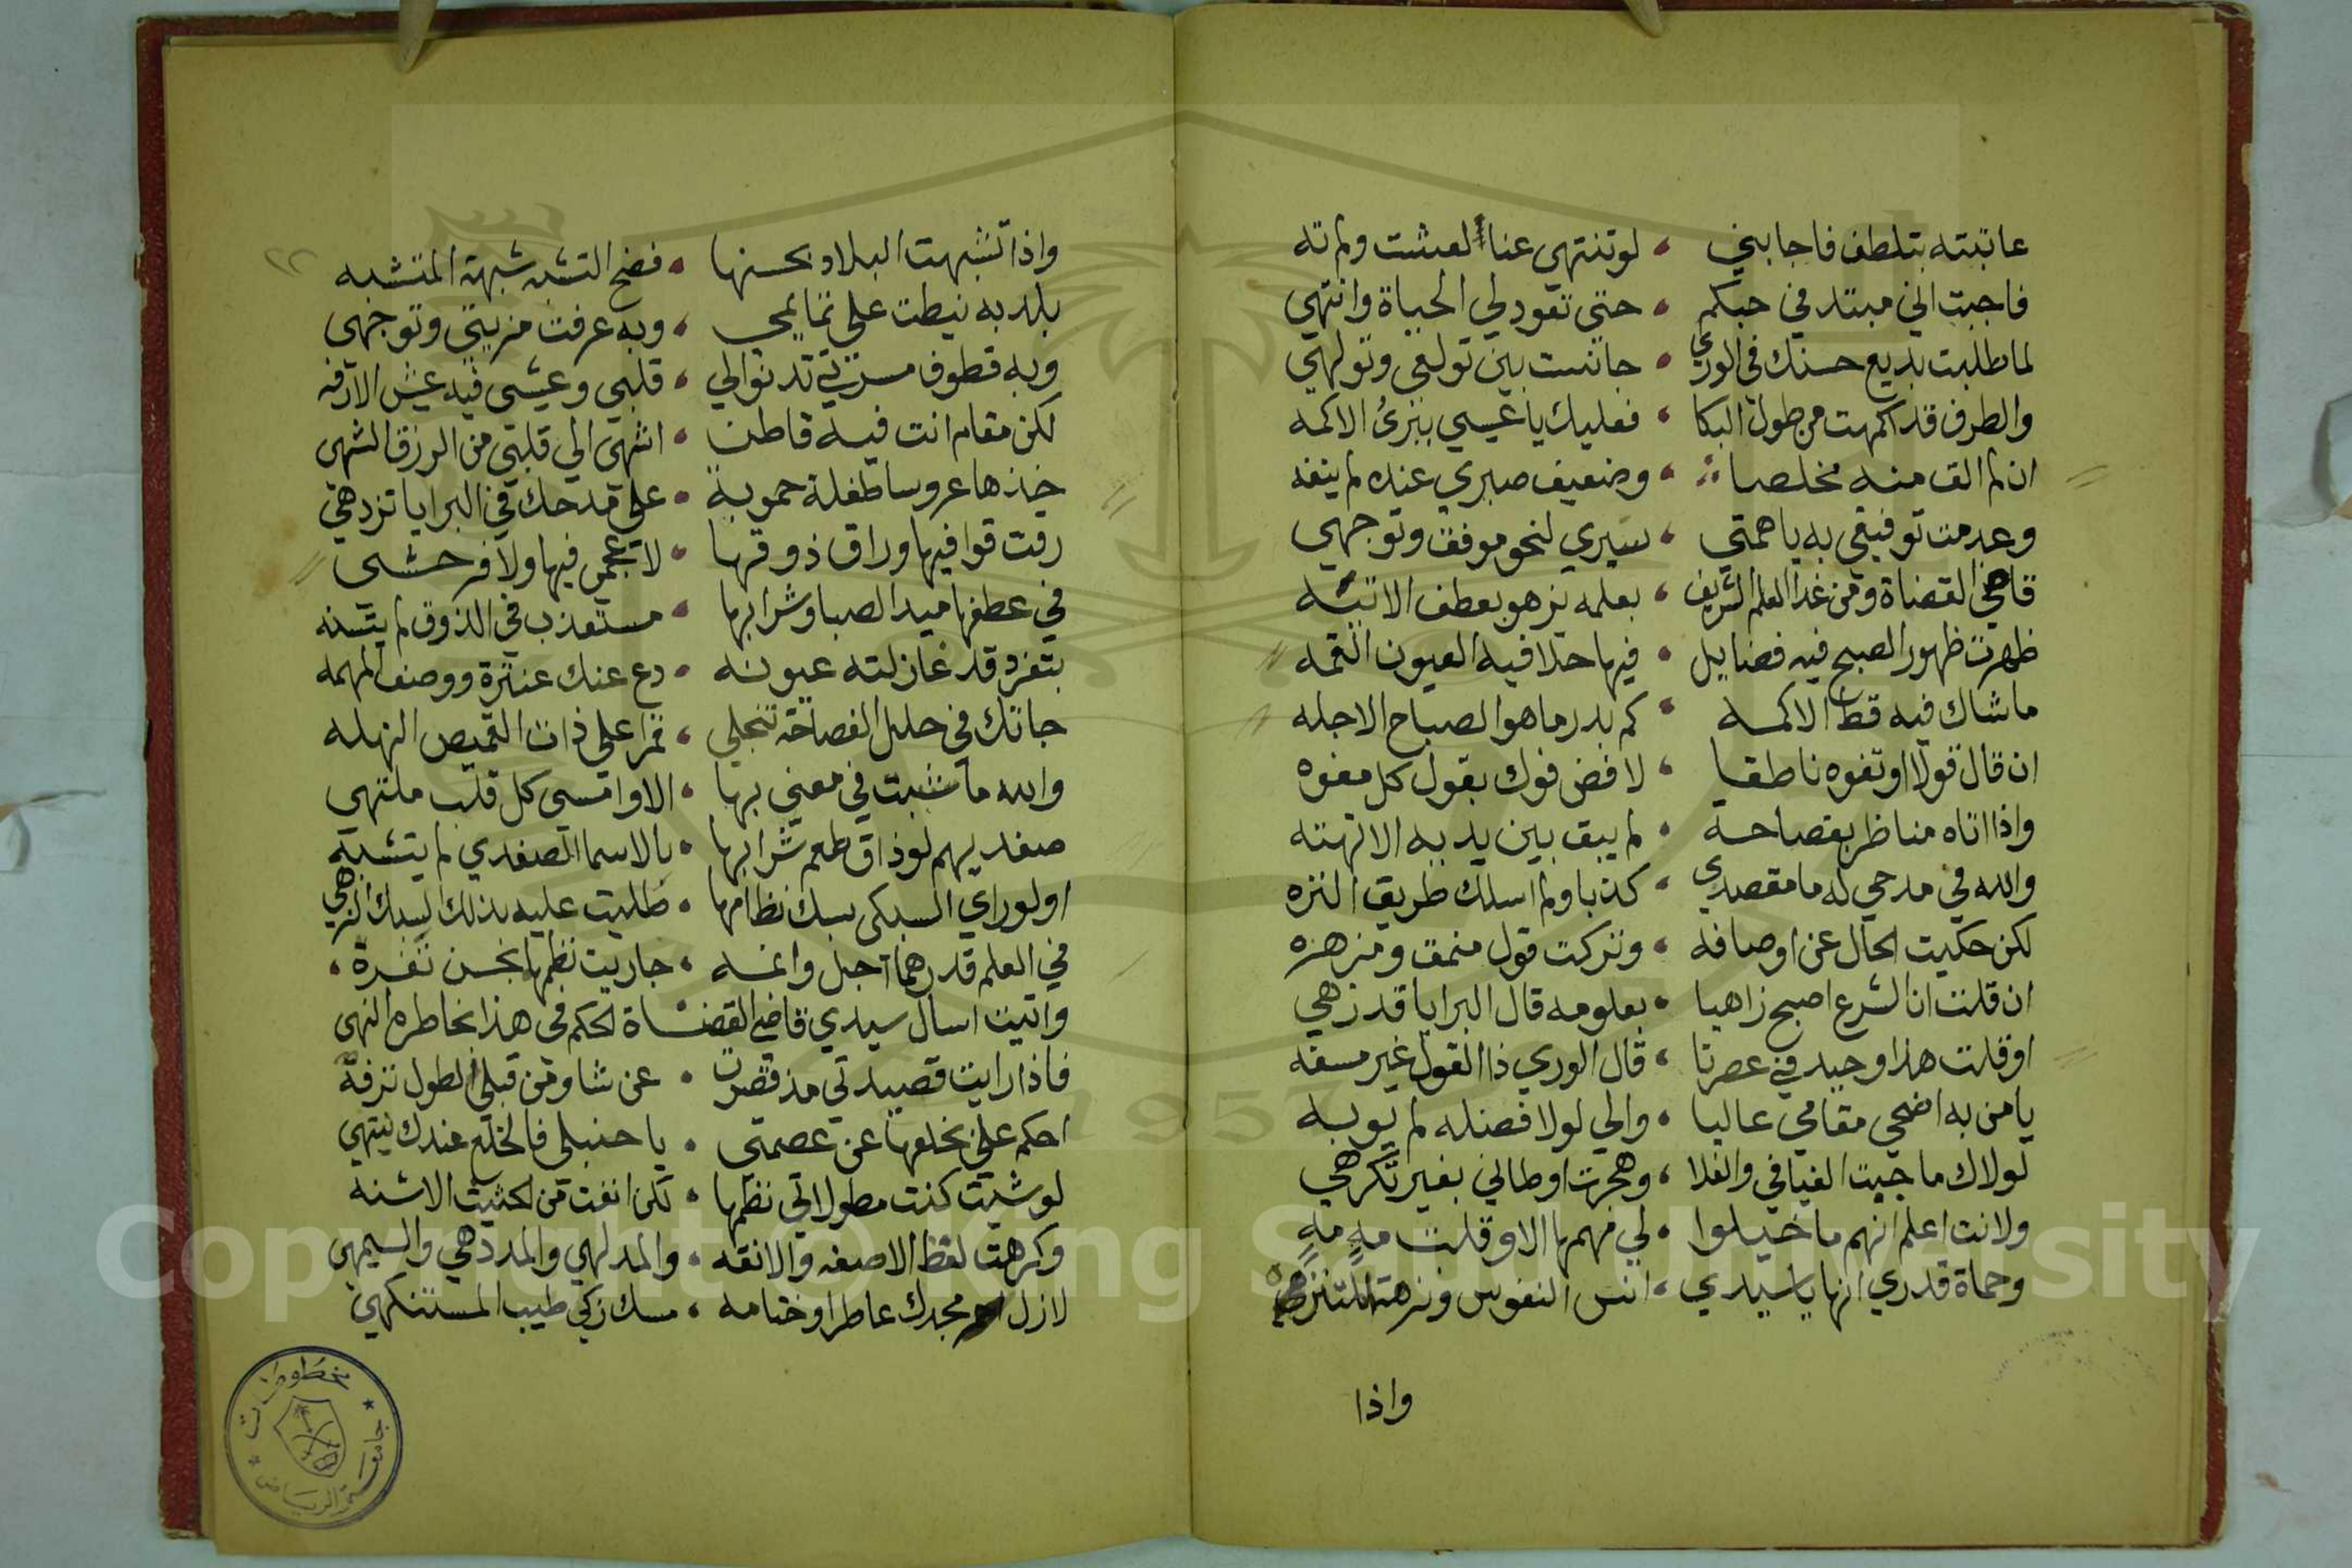 عاتبته بتلطف فاجابني ، لو تنتهي عنا لعشت ولم ته
فاجبت اني مبتد في حبكم ، حتى تعود لي الحياة وانتهي
لما طلبت بديع حسنك في الوري ، جانست بين تولعي وتولهي
والطرف قد اكمهت من طول البكا ، فعليك يا عيسي ببرئ الاكمه
ان لم الق منه مخلصا ، وضعيف صبري عنده لم ينفه
وعدمت توفيقي به يا همتي ، سيري لنحو موفق وتوجهي
قاضي القضاة ومن غدا العلم الشريف ، بعلمه يزهو بعطف الاتيه
ظهرت ظهور الصبح فيه فضايل ، فيها حلا فيه العيون القمه
ما شاك فيه قط الاكمه ، كم بدر ما هو الصباح الاجله
ان قال قولا او تفوه ناطقا ، لا فض فوك بقول كل مفوه
واذا اتاه مناظر بفصاحة ، لم يبق بين يديه الا تهته
والله في مدحي له ما مقصدي ، كذبا ولم اسلك طريق النزه
لكن حكيت الحال عن اوصافه ، وتركت قول منمق ومزهزه
ان قلت ان الشرع اصبح زاهيا ، بعلومه قال البرايا قد زهي
او قلت هذا وحيد في عصرنا ، قال الوري ذا القول غير مسفه
يا من به اضحي مقامي عاليا ، والي لولا فضله لم يوبه
لولاك ما جيت الفيافي والفلا ، وهجرت اوطاني بغير تكرهي
ولانت اعلم انهم ما خيلوا ، لي مهمها الا وقلت مه مه
وحماة قدري انها يا سيدي ، انس النفوس ونزهة المتنزه
واذا
٢٢
واذا تشبهت البلاد بحسنها ، فضح التشبه شبهة المتشبه
بلد به نيطت علي تمايمي ، وبه عرفت مزيتي وتوجهي
وبه قطوف مسرتي تدنوا لي ، قلبي وعيشي فيه عيش الارفه
لكن مقام انت فيه قاطن ، اشهي الي قلبي من الرزق الشهي
خذها عروسا طفلة حموية ، علي مدحك في البرايا تزدهي
رقت قوافيها وراق ذوقها ، لا فيها ولا
في عطفها ميد الصبا وشرابها ، مستعذب في الذوق لم يتسنه
بتفرد قد غازلته عيونه ، دع عنك عنترة ووصف المهمه
جاتك في حلل الفصاحة تنجلي ، قمرا علي ذات القميص النهله
والله ما شببت في معني بها ، الا وامسي كل قلب ملتهي
صفديهم لو ذاق طعم شرابها ، بالاسما الصفدي لم يتشبه
او لو راي السبكي سبك نظامها ، طلبت عليه بذلك السبك الزهي
في العلم قدرهما اجل وانمه ، جاريت نظمها بحسن تفره ،
واتيت اسال سيدي قاضي القضاة الحكم في هذا بخاطره النهي
فاذا رايت قصيدتي مذ قصرت ، عن شاو من قبلي لطول ترفه
احكم علي بخلعها عن عصمتي ، يا حنبلي فالخلع عندك ينتهي
لو شيت كنت مطولا في نظمها ، لكن انفت من الاشنه
وكرهت لفظ الاصفه والانقه ، والمدلهي والمددهي والسيمهي
لازل مجدك عاطرا وختامه ، مسك زكي طيب المستنكهي
مخطوطات
جامعة الرياض
1957
Copyright © King Saud University